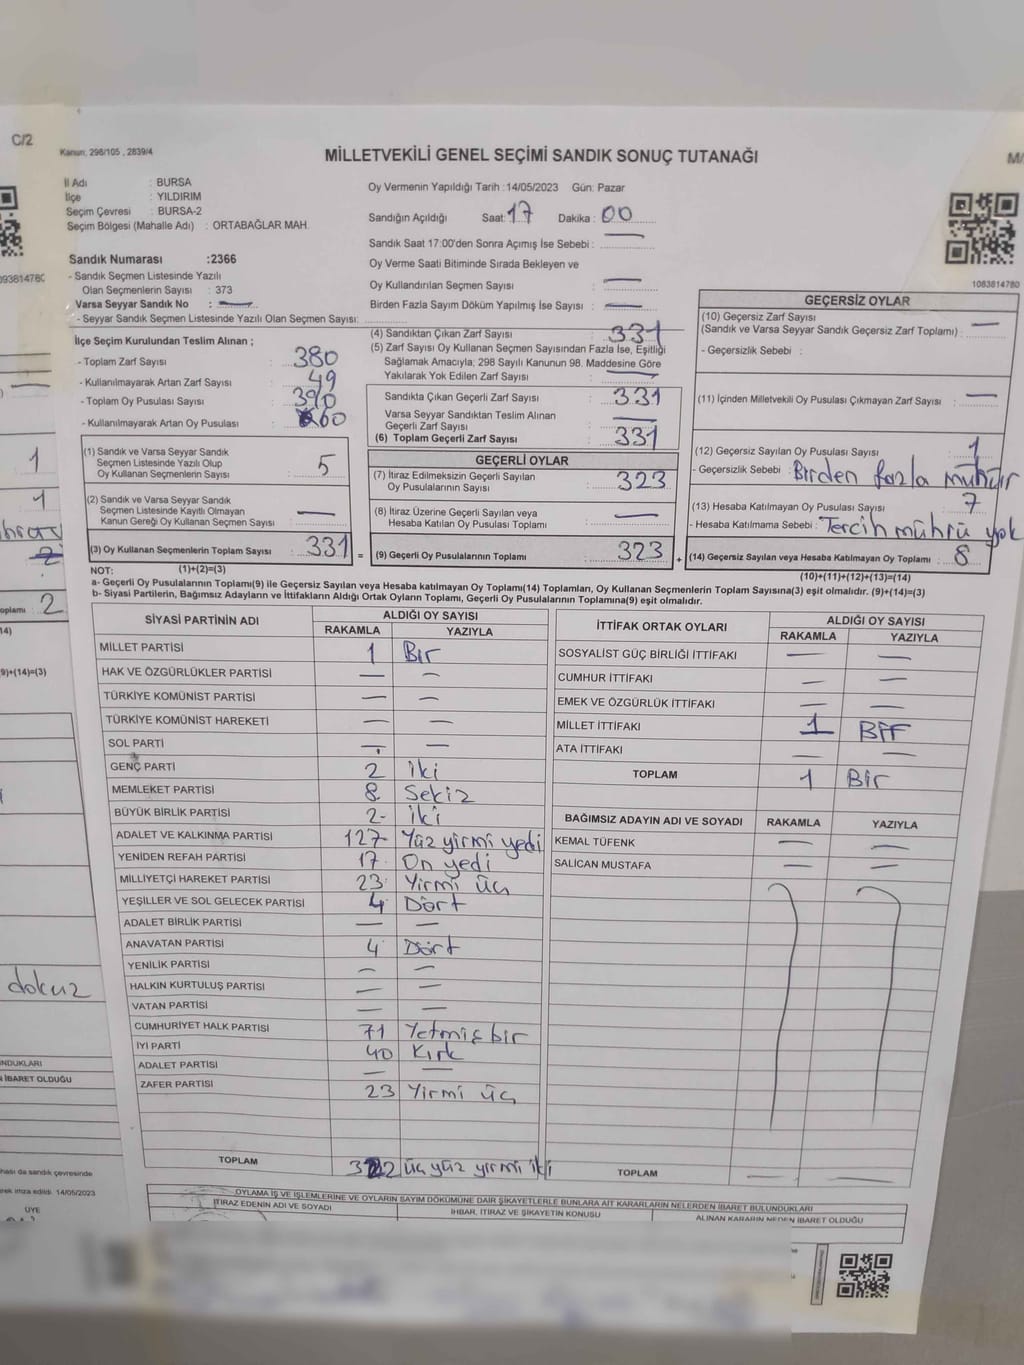 C/2
Kanun: 298/105 , 2839/4
MİLLETVEKİLİ GENEL SEÇİMİ SANDIK SONUÇ TUTANAĞI
M/
İl Adı : BURSA
İlçe : YILDIRIM
Seçim Çevresi : BURSA-2
Seçim Bölgesi (Mahalle Adı) : ORTABAĞLAR MAH.
Oy Vermenin Yapıldığı Tarih :14/05/2023 Gün: Pazar
Sandığın Açıldığı Saat: 17 Dakika : 00
Sandık Saat 17:00'den Sonra Açımış İse Sebebi :
Oy Verme Saati Bitiminde Sırada Bekleyen ve
Oy Kullandırılan Seçmen Sayısı : —
Birden Fazla Sayım Döküm Yapılmış İse Sayısı : —
1083814780
Sandık Numarası :2366
- Sandık Seçmen Listesinde Yazılı
Olan Seçmenlerin Sayısı : 373
Varsa Seyyar Sandık No : —
- Seyyar Sandık Seçmen Listesinde Yazılı Olan Seçmen Sayısı:
İlçe Seçim Kurulundan Teslim Alınan ;
- Toplam Zarf Sayısı : 380
- Kullanılmayarak Artan Zarf Sayısı : 49
- Toplam Oy Pusulası Sayısı : 390
- Kullanılmayarak Artan Oy Pusulası : 60
(1) Sandık ve Varsa Seyyar Sandık
Seçmen Listesinde Yazılı Olup
Oy Kullanan Seçmenlerin Sayısı : 5
(2) Sandık ve Varsa Seyyar Sandık
Seçmen Listesinde Kayıtlı Olmayan
Kanun Gereği Oy Kullanan Seçmen Sayısı : —
(3) Oy Kullanan Seçmenlerin Toplam Sayısı : 331 =
(1)+(2)=(3)
(4) Sandıktan Çıkan Zarf Sayısı : 331
(5) Zarf Sayısı Oy Kullanan Seçmen Sayısından Fazla İse, Eşitliği
Sağlamak Amacıyla; 298 Sayılı Kanunun 98. Maddesine Göre
Yakılarak Yok Edilen Zarf Sayısı : —
Sandıkta Çıkan Geçerli Zarf Sayısı : 331
Varsa Seyyar Sandıktan Teslim Alınan
Geçerli Zarf Sayısı : —
(6) Toplam Geçerli Zarf Sayısı : 331
GEÇERLİ OYLAR
(7) İtiraz Edilmeksizin Geçerli Sayılan
Oy Pusulalarının Sayısı : 323
(8) İtiraz Üzerine Geçerli Sayılan veya
Hesaba Katılan Oy Pusulası Toplamı : —
(9) Geçerli Oy Pusulalarının Toplamı : 323 +
GEÇERSİZ OYLAR
(10) Geçersiz Zarf Sayısı
(Sandık ve Varsa Seyyar Sandık Geçersiz Zarf Toplamı) : —
- Geçersizlik Sebebi :
(11) İçinden Milletvekili Oy Pusulası Çıkmayan Zarf Sayısı : —
(12) Geçersiz Sayılan Oy Pusulası Sayısı : 1
- Geçersizlik Sebebi : Birden fazla mühür
(13) Hesaba Katılmayan Oy Pusulası Sayısı : 7
- Hesaba Katılmama Sebebi : Tercih mührü yok
(14) Geçersiz Sayılan veya Hesaba Katılmayan Oy Toplamı : 8
(10)+(11)+(12)+(13)=(14)
NOT:
a- Geçerli Oy Pusulalarının Toplamı(9) ile Geçersiz Sayılan veya Hesaba katılmayan Oy Toplamı(14) Toplamları, Oy Kullanan Seçmenlerin Toplam Sayısına(3) eşit olmalıdır. (9)+(14)=(3)
b- Siyasi Partilerin, Bağımsız Adayların ve İttifakların Aldığı Ortak Oyların Toplamı, Geçerli Oy Pusulalarının Toplamına(9) eşit olmalıdır.
SİYASİ PARTİNİN ADI
ALDIĞI OY SAYISI
RAKAMLA YAZIYLA
MİLLET PARTİSİ 1 Bir
HAK VE ÖZGÜRLÜKLER PARTİSİ — —
TÜRKİYE KOMÜNİST PARTİSİ — —
TÜRKİYE KOMÜNİST HAREKETİ — —
SOL PARTİ — —
GENÇ PARTİ 2 iki
MEMLEKET PARTİSİ 8 Sekiz
BÜYÜK BİRLİK PARTİSİ 2 iki
ADALET VE KALKINMA PARTİSİ 127 Yüz yirmi yedi
YENİDEN REFAH PARTİSİ 17 On yedi
MİLLİYETÇİ HAREKET PARTİSİ 23 Yirmi üç
YEŞİLLER VE SOL GELECEK PARTİSİ 4 Dört
ADALET BİRLİK PARTİSİ — —
ANAVATAN PARTİSİ 4 Dört
YENİLİK PARTİSİ — —
HALKIN KURTULUŞ PARTİSİ — —
VATAN PARTİSİ — —
CUMHURİYET HALK PARTİSİ 71 Yetmiş bir
İYİ PARTİ 40 Kırk
ADALET PARTİSİ — —
ZAFER PARTİSİ 23 Yirmi üç
TOPLAM 322 üç yüz yirmi iki
İTTİFAK ORTAK OYLARI
ALDIĞI OY SAYISI
RAKAMLA YAZIYLA
SOSYALİST GÜÇ BİRLİĞİ İTTİFAKI — —
CUMHUR İTTİFAKI — —
EMEK VE ÖZGÜRLÜK İTTİFAKI — —
MİLLET İTTİFAKI 1 Bir
ATA İTTİFAKI — —
TOPLAM 1 Bir
BAĞIMSIZ ADAYIN ADI VE SOYADI RAKAMLA YAZIYLA
KEMAL TÜFENK — —
SALİCAN MUSTAFA — —
TOPLAM — —
OYLAMA İŞ VE İŞLEMLERİNE VE OYLARIN SAYIM DÖKÜMÜNE DAİR ŞİKAYETLERLE BUNLARA AİT KARARLARIN NELERDEN İBARET BULUNDUKLARI
İTİRAZ EDENİN ADI VE SOYADI
İHBAR, İTİRAZ VE ŞİKAYETİN KONUSU
ALINAN KARARIN NEDEN İBARET OLDUĞU
1
1
2
2
14)
9)+(14)=(3)
dokuz
İBARET OLDUĞU
14/05/2023
ÜYE